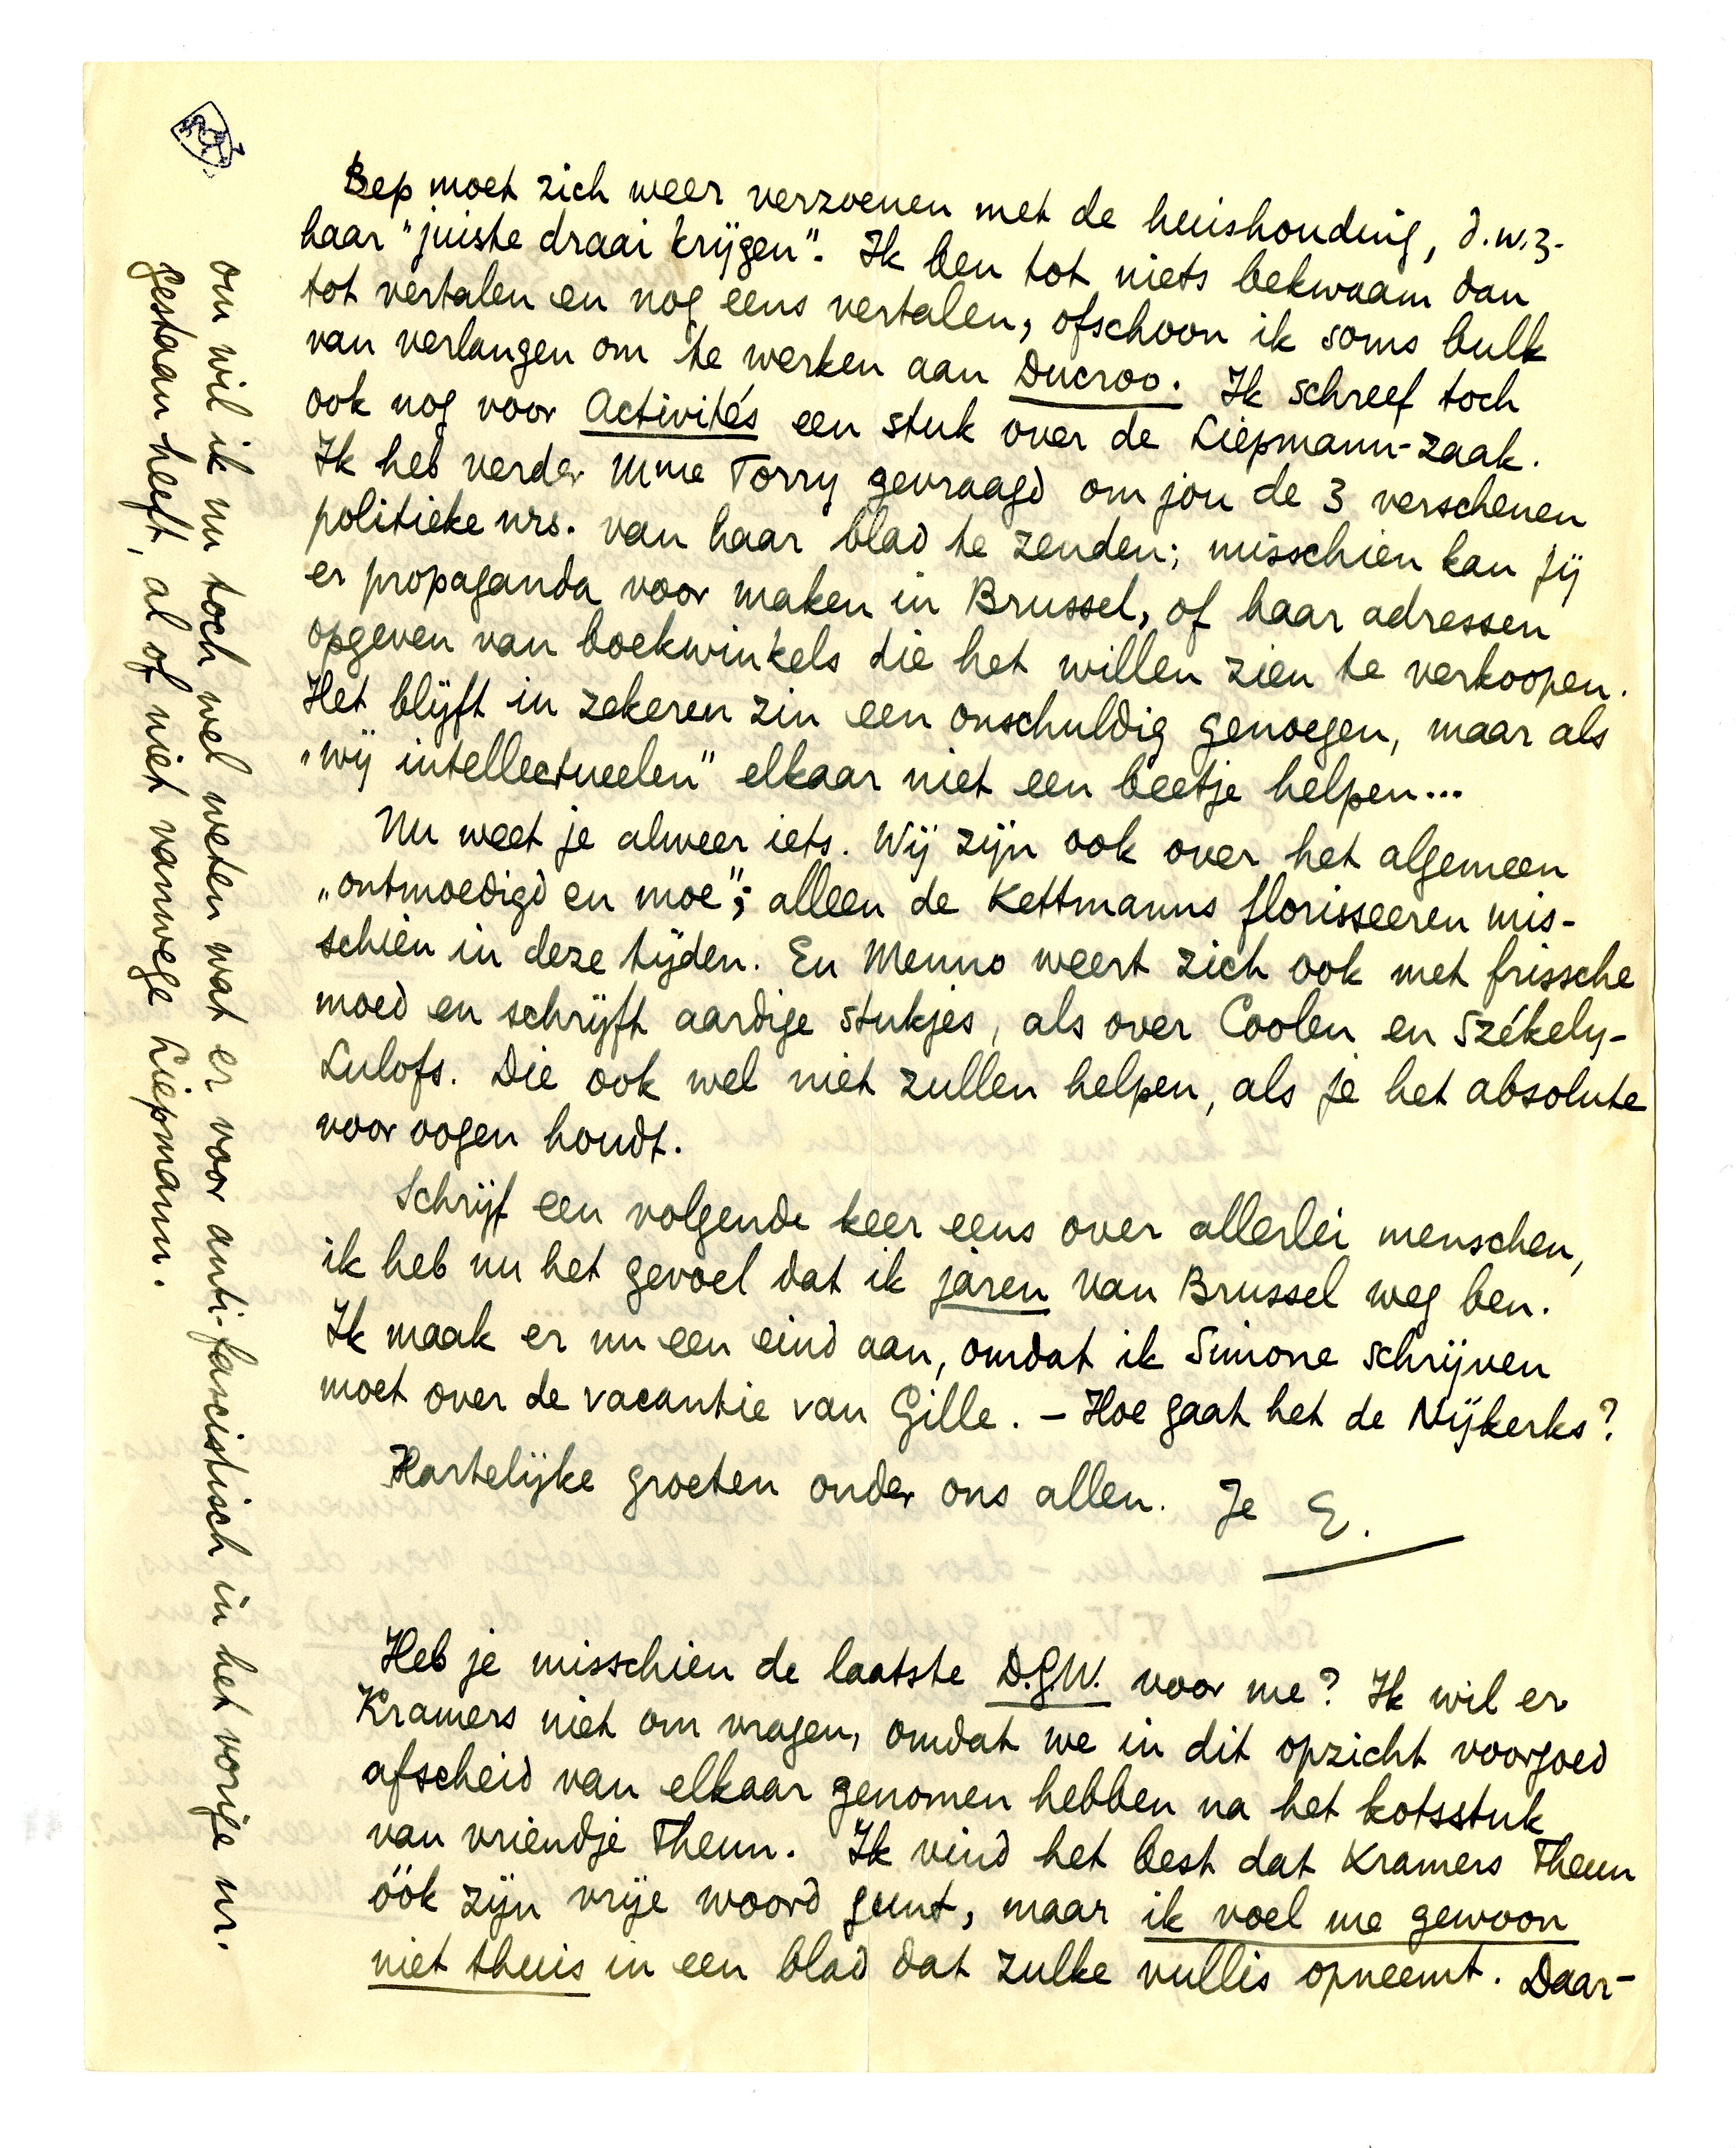 Bep moet zich weer verzoenen met de huishouding, d.w.z.
haar "juiste draai krijgen". Ik ben tot niets bekwaam dan
tot vertalen en nog eens vertalen, ofschoon ik soms bulk
van verlangen om te werken aan Ducroo. Ik schreef toch
ook nog voor Activités een stuk over de Liepmann-zaak.
Ik heb verder Mme Torry gevraagd om jou de 3 verschenen
politieke nrs. van haar blad te zenden; misschien kan jij
er propaganda voor maken in Brussel, of haar adressen
opgeven van boekwinkels die het willen zien te verkoopen.
Het blijft in zekeren zin een onschuldig genoegen, maar als
„wij intellectueelen" elkaar niet een beetje helpen...
Nu weet je alweer iets. Wij zijn ook over het algemeen
„ontmoedigd en moe"; alleen de Kettmanns florisseeren mis-
schien in deze tijden. En Menno weert zich ook met frissche
moed en schrijft aardige stukjes, als over Coolen en Székely-
Lulofs. Die ook wel niet zullen helpen, als je het absolute
voor oogen houdt.
Schrijf een volgende keer eens over allerlei menschen,
ik heb nu het gevoel dat ik jaren van Brussel weg ben.
Ik maak er nu een eind aan, omdat ik Simone schrijven
moet over de vacantie van Gille. – Hoe gaat het de Nijkerks?
Hartelijke groeten onder ons allen. Je E.
Heb je misschien de laatste D.G.W. voor me? Ik wil er
Kramers niet om vragen, omdat we in dit opzicht voorgoed
afscheid van elkaar genomen hebben na het kotsstuk
van vriendje Theun. Ik vind het best dat Kramers Theun
óók zijn vrije woord gunt, maar ik voel me gewoon
niet thuis in een blad dat zulke vullis opneemt. Daar-
om wil ik nu toch wel weten wat er voor anti-fascistisch in het vorige nr.
gestaan heeft, al of niet vanwege Liepmann.